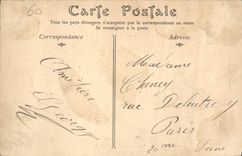 60
Carte Postale
Tous les pays étrangers n'acceptent pas la correspondance au recto.
Se renseigner à la poste.
Correspondance
Adresse
Amitiers
Georges
Madame
rue
Paris
20me